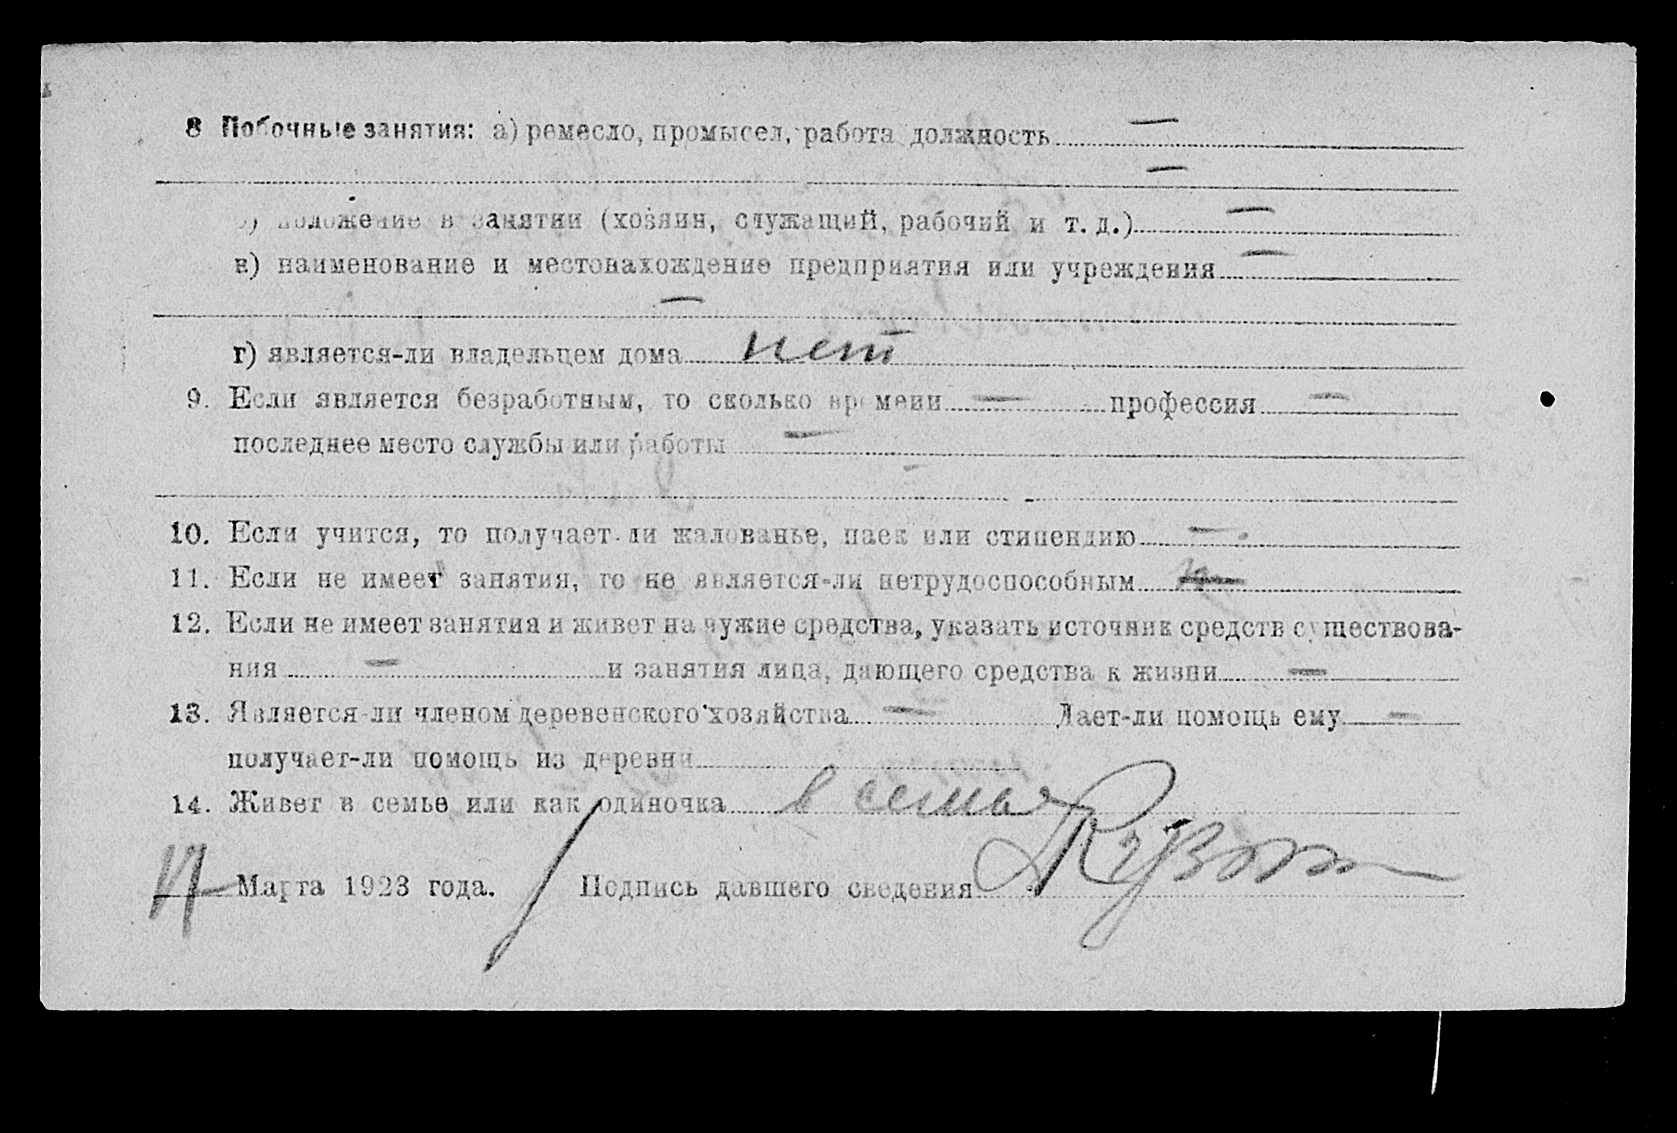 8 Побочные занятия: а) ремесло, промысел, работа должность —
—
б) положение в занятии (хозяин, служащий, рабочий и т. д.) —
в) наименование и местонахождение предприятия или учреждения —
—
г) является-ли владельцем дома нет
9. Если является безработным, то сколько времени — профессия —
последнее место службы или работы —
10. Если учится, то получает-ли жалованье, паек или стипендию —
11. Если не имеет занятия, то не является-ли нетрудоспособным
12. Если не имеет занятия и живет на чужие средства, указать источник средств существова-
ния — и занятия лица, дающего средства к жизни —
13. Является-ли членом деревенского хозяйства — Дает-ли помощь ему —
получает-ли помощь из деревни
14. Живет в семье или как одиночка в семье
Марта 1923 года. Подпись давшего сведения